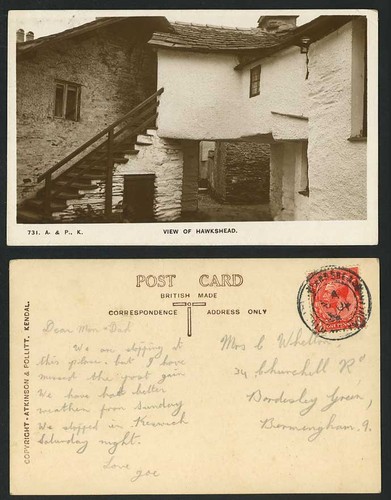 731. A. & P., K.
VIEW OF HAWKSHEAD.
POST CARD
BRITISH MADE
CORRESPONDENCE
ADDRESS ONLY
COPYRIGHT - ATKINSON & POLLITT, KENDAL.
Dear Mom + Dad
We are stopping at
this place. but I have
missed the post again
We have had better
weather from Sunday
We stopped in Keswick
Saturday night.
Love
Joe
Mrs C Whetton
34 Churchill Rd
Bordesley Green,
Bormengham. 9.